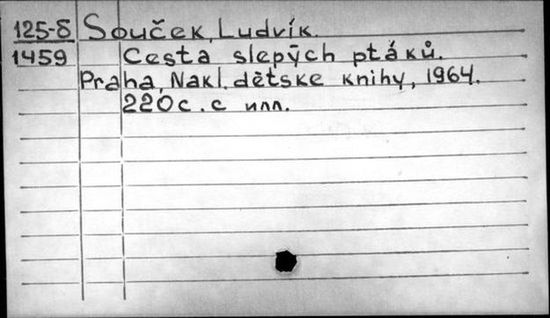 125-8 Souček, Ludvík.
1459 Cesta slepých ptáků.
Praha, Nakl. dětske knihy, 1964.
220 с. с илл.